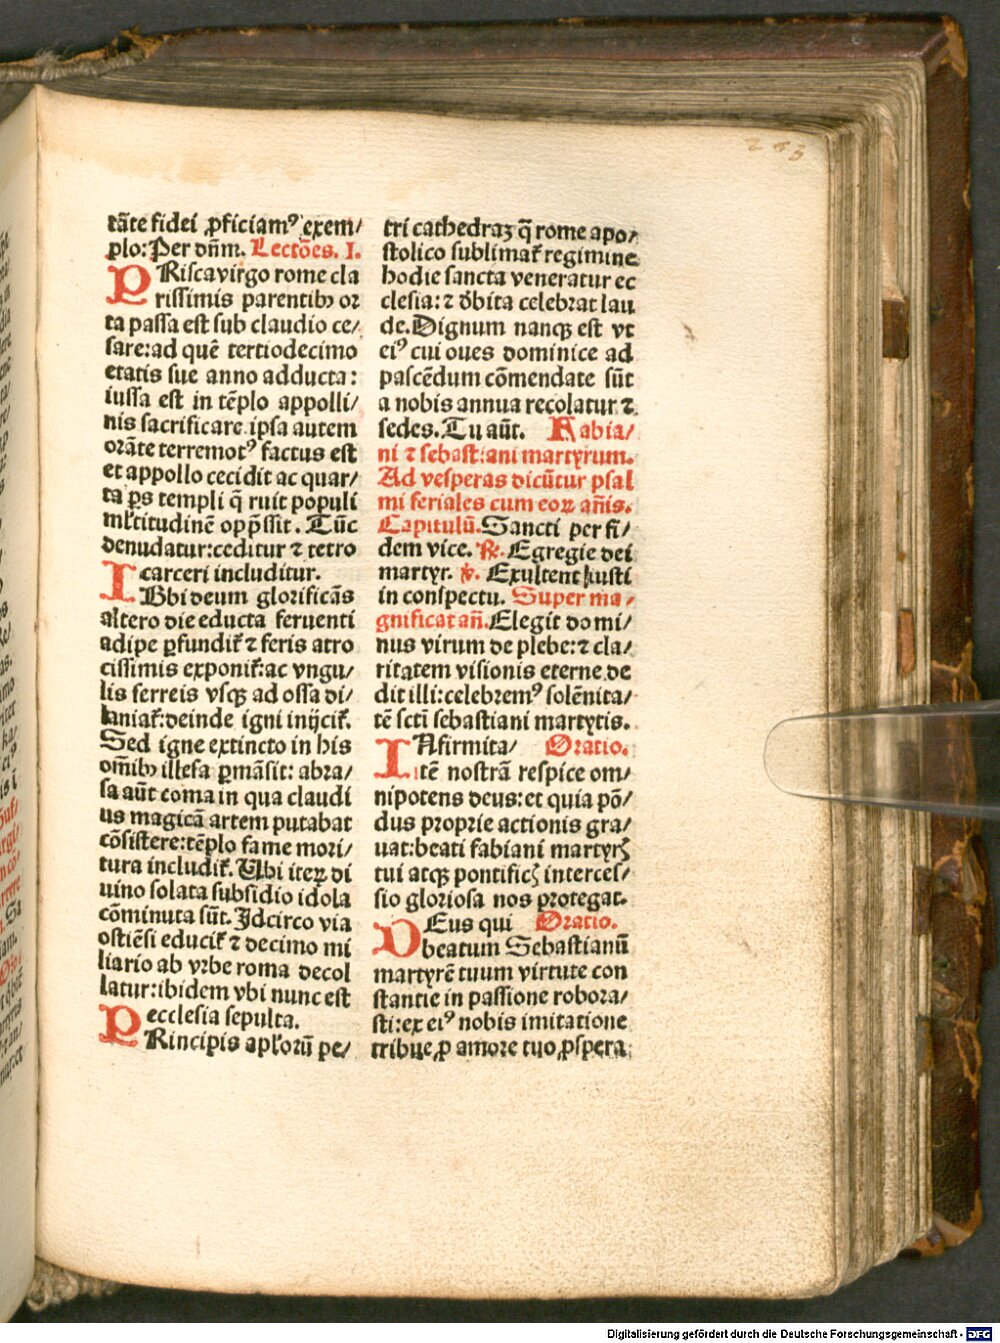 243
tāte fidei ꝓficiamꝰ exem/
plo: Per dn̄m. Lectōes. I.
PRisca virgo rome cla
rissimis parentibꝫ or
ta passa est sub claudio ce/
sare: ad quē tertiodecimo
etatis sue anno adducta:
iussa est in tēplo appolli/
nis sacrificare. ipsa autem
orāte terremotꝰ factus est
et appollo cecidit ac quar/
ta ps̄ templi q̄ ruit populi
ml̄titudinē opp̄ssit. Tūc
denudatur: ceditur ⁊ retro
carceri includitur.
IBbi deum glorificās
altero die educta feruenti
adipe ꝑfundit̄ ⁊ feris atro
cissimis exponit̄: ac vngu/
lis ferreis vsqꝫ ad ossa di/
laniat̄: deinde igni inijcit̄.
Sed igne extincto in his
om̄ibꝫ illesa ꝑmāsit: abra/
sa aūt coma in qua claudi
us magicā artem putabat
cōsistere: tēplo fame mori/
tura includit̄. Ubi iteꝝ di
uino solata subsidio idola
cōminuta sūt. Idcirco via
ostiēsi educit̄ ⁊ decimo mi
liario ab vrbe roma decol
latur: ibidem vbi nunc est
ecclesia sepulta.
PRincipis apl̄orū pe/
tri cathedraꝫ q̄ rome apo/
stolico sublimat̄ regimine
hodie sancta veneratur ec
clesia: ⁊ d̄bita celebrat lau
de. Dignum nanqꝫ est vt
eiꝰ cui oues dominice ad
pascēdum cōmendate sūt
a nobis annua recolatur ⁊
sedes. Tu aūt. Fabia/
ni ⁊ sebastiani martyrum.
Ad vesperas dicūtur psal
mi feriales cum eoꝝ an̄is.
Capitulū. Sancti per fi/
dem vice. ℟. Egregie dei
martyr. ℣. Exultent iusti
in conspectu. Super ma/
gnificat an̄. Elegit domi/
nus virum de plebe: ⁊ cla/
ritatem visionis eterne de
dit illi: celebremꝰ solēnita/
tē scti sebastiani martyris.
INfirmita/ Oratio.
tē nostrā respice om/
nipotens deus: et quia pō/
dus proprie actionis gra/
uat: beati fabiani martyrꝭ
tui atqꝫ pontificꝭ interces/
sio gloriosa nos protegat.
DEus qui Oratio.
beatum Sebastianū
martyrē tuum virtute con
stantie in passione robora/
sti: ex eiꝰ nobis imitatione
tribue ꝓ amore tuo ꝓspera
Digitalisierung gefördert durch die Deutsche Forschungsgemeinschaft - DFG